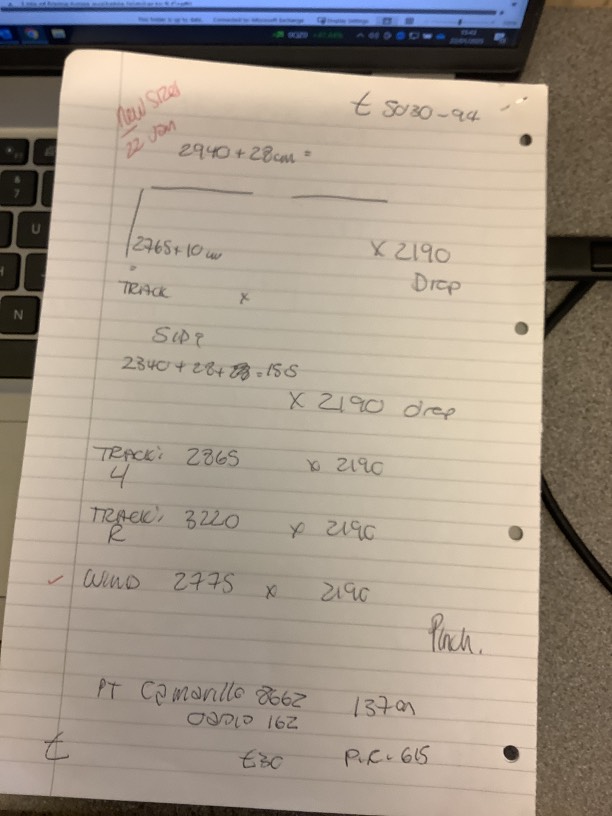 New Sizes
22 Jan
t 5030-94
2940 + 28cm =
2765 + 10cm
x 2190
Drop
TRACK x
Side
2340 + 28 +
x 2190 drop
TRACK: 2865 x 2190
4
TRACK: 3220 x 2190
R
✓ WIND 2775 x 2190
Pinch.
PT Camarillo 8662 137cm
162
t £30 P.R. 615